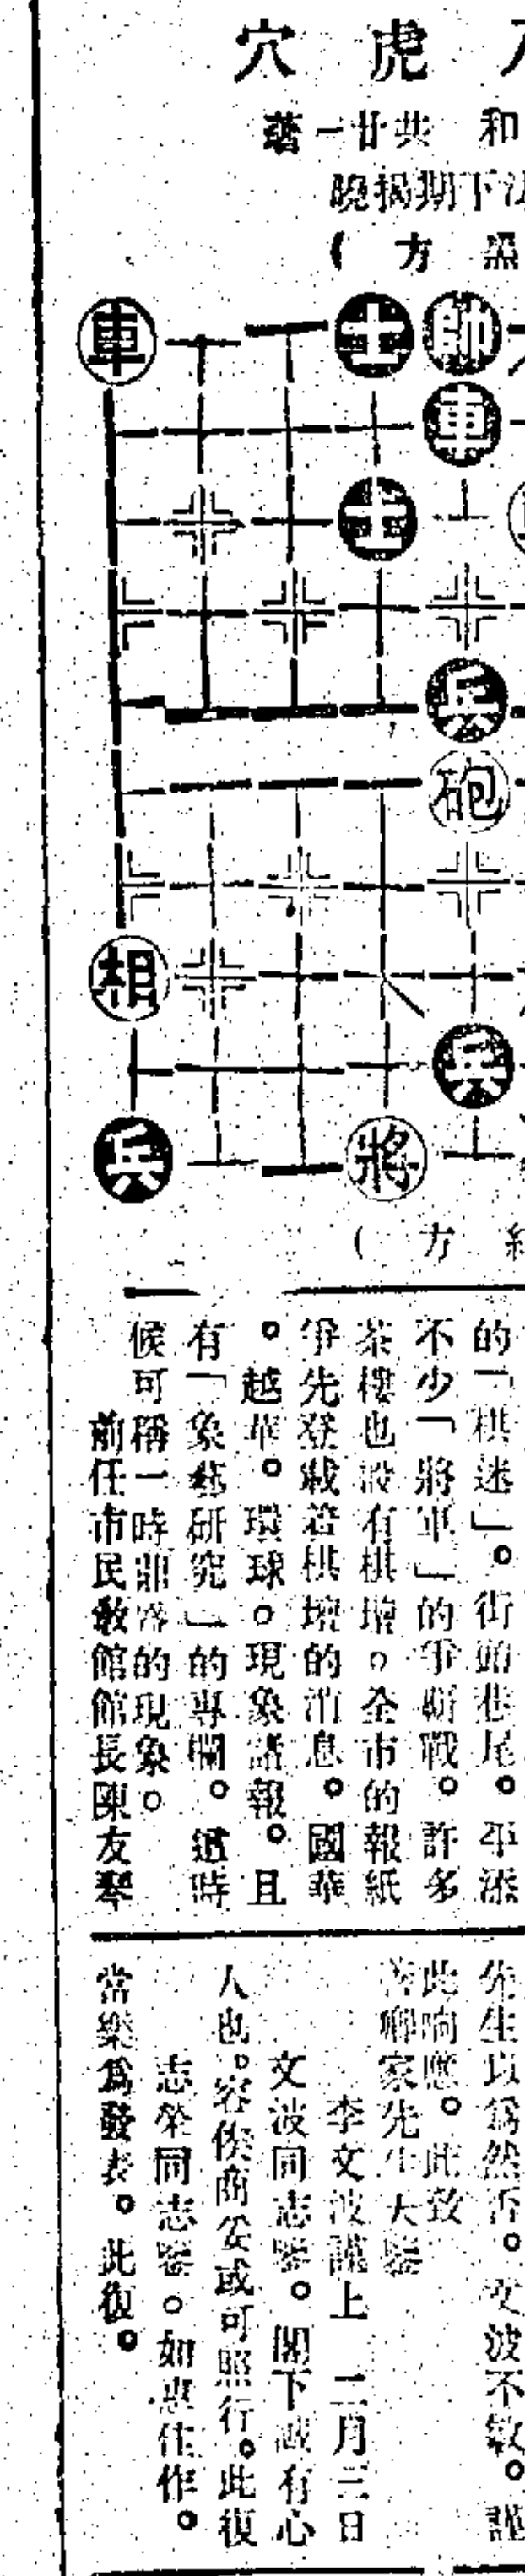 虎穴
和 共廿一著
下期揭曉
黑方)
車 士 帥
車
士
兵
砲
相
兵
兵 將
方)
的「棋迷」。街頭巷尾。平添
不少「將軍」的爭霸戰。許多
茶樓也設有棋壇。全市的報紙
爭先登載着棋壇的消息。國華
。越華。環球。現象諸報。且
有「象藝研究」的專欄。這時
候可稱一時鼎盛的現象。
前任市民教館館長陳友琴
先生以爲然否。文波不敏。謹
此响應。此致
卿家先生大鑒
李文波謹上 二月三日
文波同志鑒。閣下誠有心
人也。容俟商妥或可照行。此復
志榮同志鑒。如惠佳作。
當樂爲發表。此復。